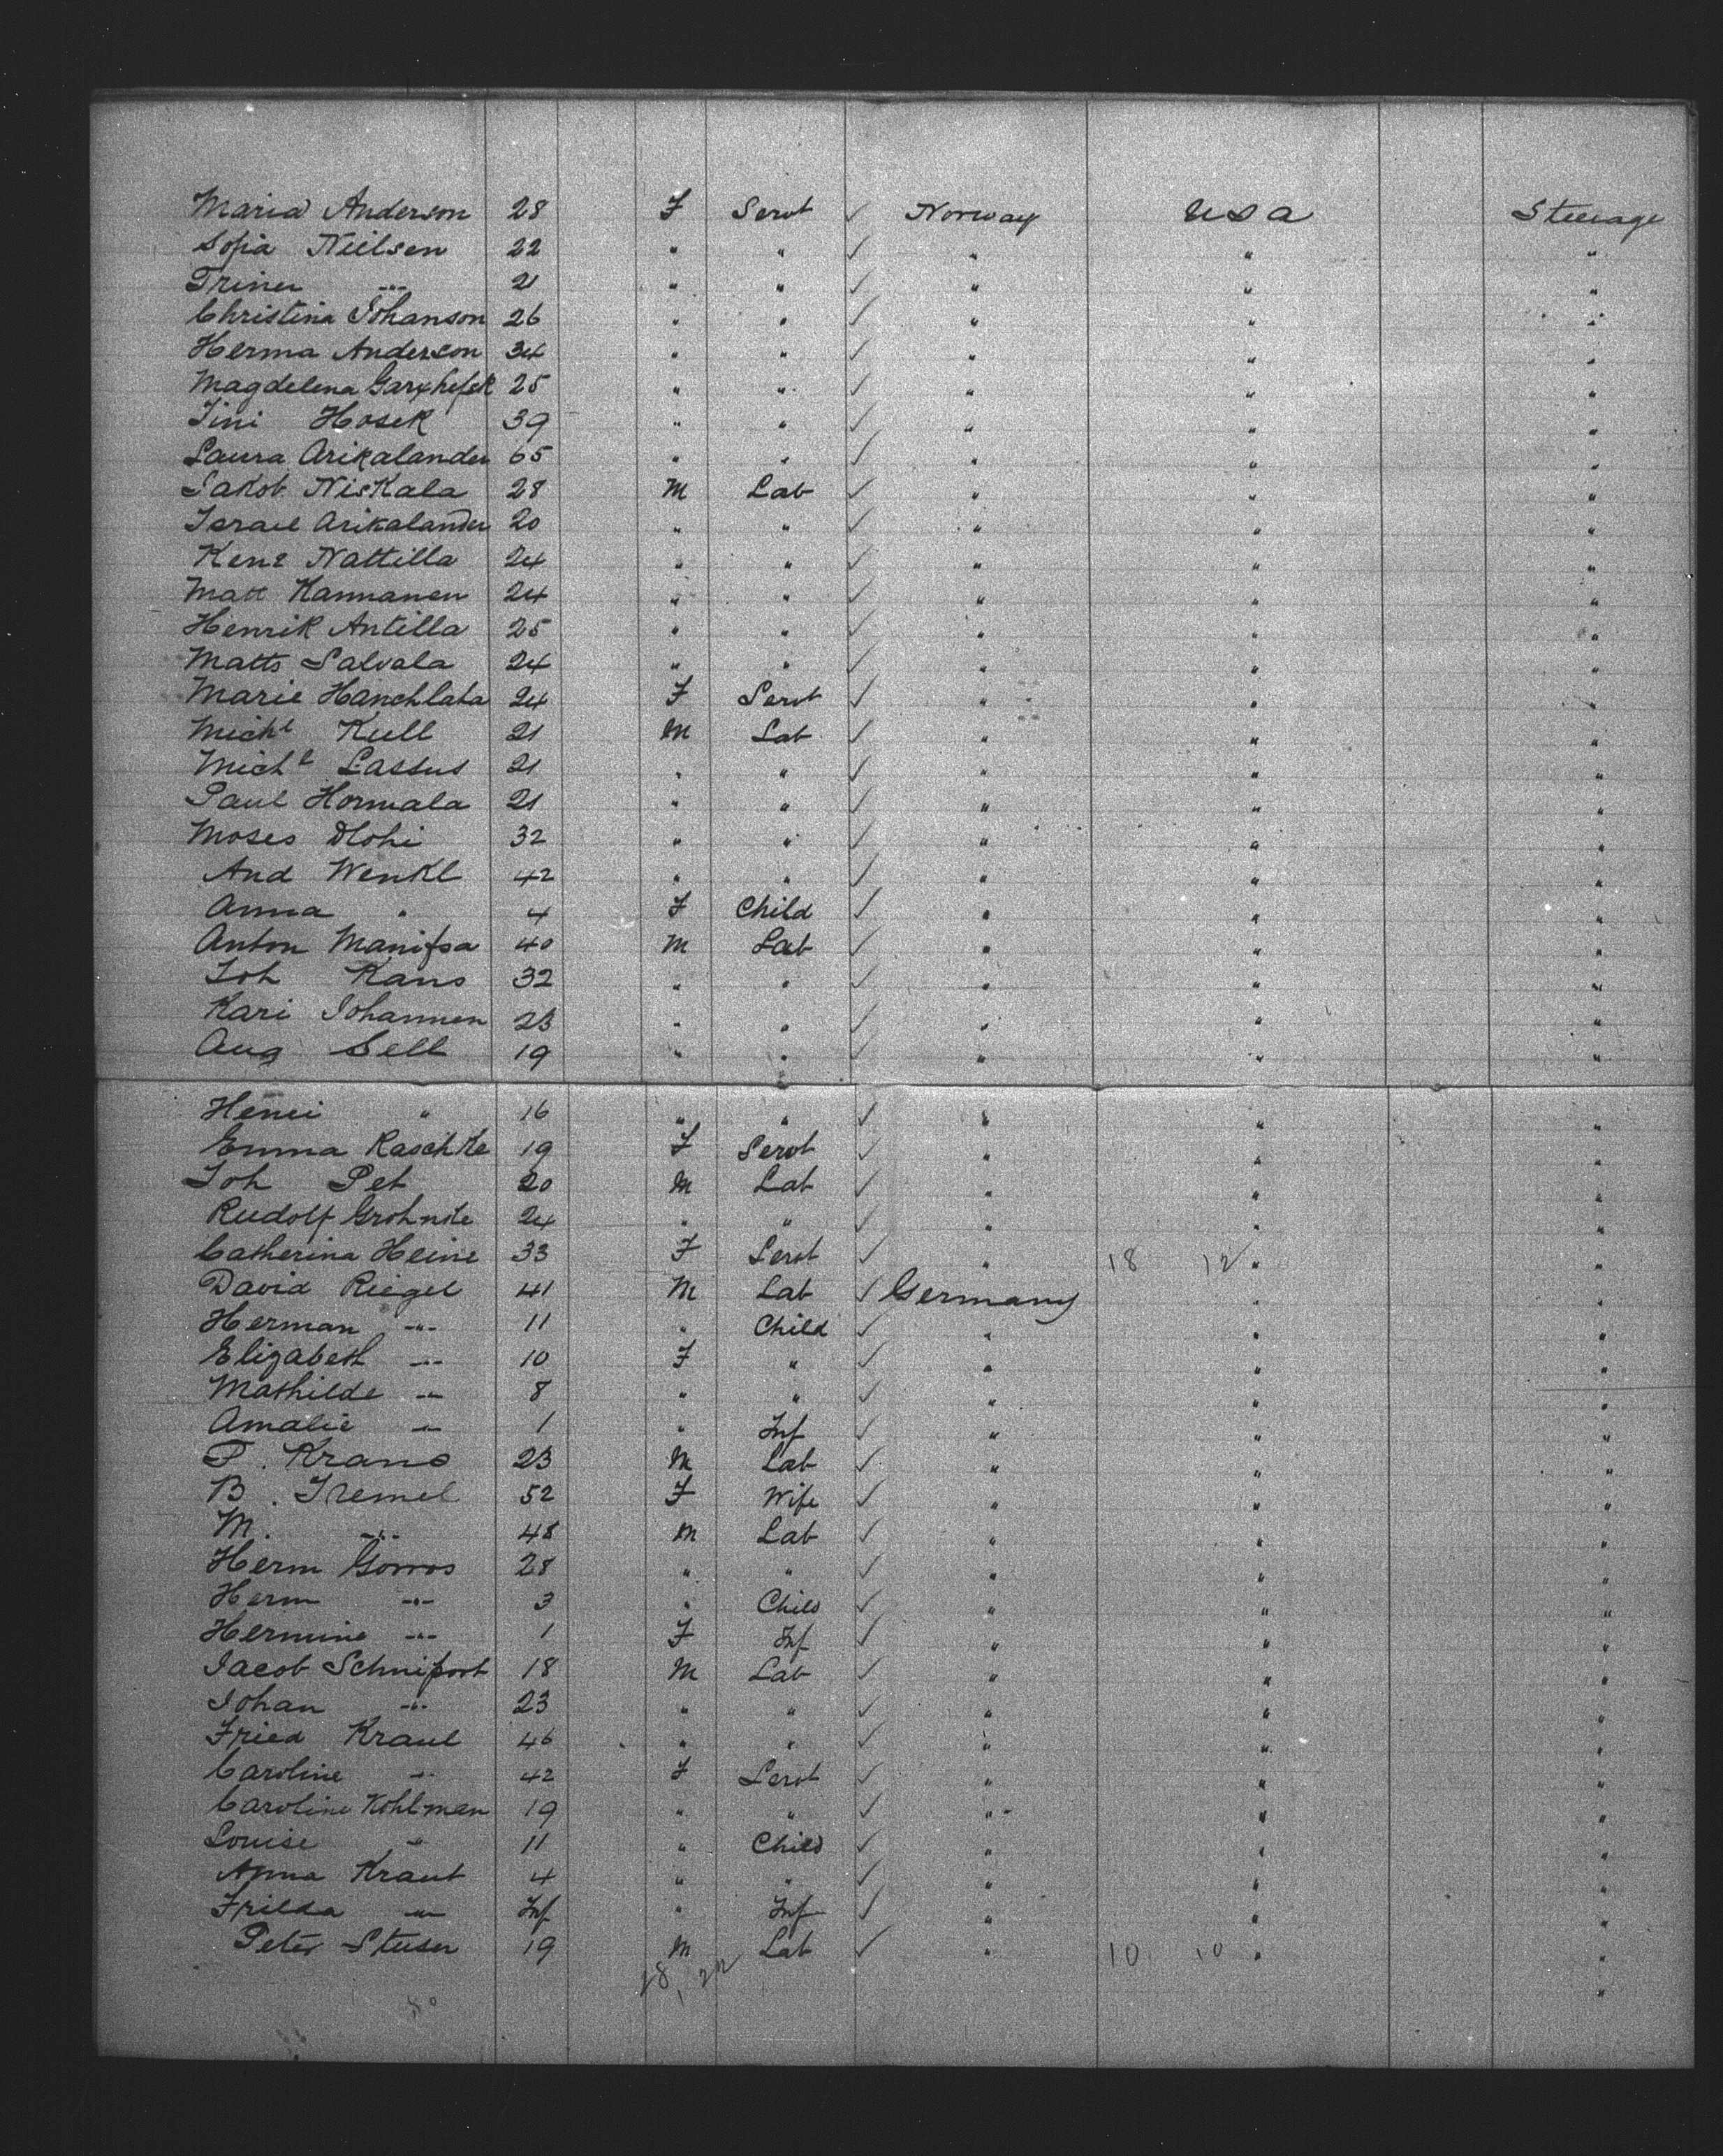 Maria Anderson 28 F Servt ✓ Norway USA Steerage
Sofia Nielsen 22 " " ✓ " " "
Trine " 21 " " ✓ " " "
Christina Johanson 26 " " ✓ " " "
Herma Anderson 34 " " ✓ " " "
Magdelena 25 " " ✓ " " "
Tini Hosek 39 " " ✓ " " "
Laura Arikalander 65 " " ✓ " " "
Jakob Niskala 28 M Lab ✓ " " "
Israel Arikalander 20 " " ✓ " " "
Nattilla 24 " " ✓ " " "
Matt Kannanen 24 " " ✓ " " "
Henrik Antilla 25 " " ✓ " " "
Matts Salvala 24 " " ✓ " " "
Marie 24 F Servt ✓ " " "
Michl Kull 21 M Lab ✓ " " "
Michl Lassus 21 " " ✓ " " "
Paul Hormala 21 " " ✓ " " "
Moses 32 " " ✓ " " "
And Wenkl 42 " " ✓ " " "
Anna " 4 F Child ✓ " " "
Anton 40 M Lab ✓ " " "
Joh Kans 32 " " ✓ " " "
Kari Johannen 23 " " ✓ " " "
Aug Sell 19 " " ✓ " " "
Henri " 16 " " ✓ " " "
Emma Raschke 19 F Servt ✓ " " "
Joh Pet 20 M Lab ✓ " " "
Rudolf Grohnke 24 " " ✓ " " "
Catherina Heine 33 F Servt ✓ " 18 12 " "
David Riegel 41 M Lab ✓ Germany " "
Herman " 11 " Child ✓ " " "
Elizabeth " 10 F " ✓ " " "
Mathilde " 8 " " ✓ " " "
Amalie " 1 " Inf ✓ " " "
P. Krans 23 M Lab ✓ " " "
B. 52 F Wife ✓ " " "
M. " 48 M Lab ✓ " " "
Herm 28 " " ✓ " " "
Herm " 3 " Child ✓ " " "
Hermine " 1 F Inf ✓ " " "
Jacob 18 M Lab ✓ " " "
Johan " 23 " " ✓ " " "
Fried Kraul 46 " " ✓ " " "
Caroline " 42 F Servt ✓ " " "
Caroline Kohlman 19 " " ✓ " " "
Louise " 11 " Child ✓ " " "
Anna Kraut 4 " " ✓ " " "
Frilda " Inf " Inf ✓ " " "
Peter 19 M Lab ✓ " 10 10 " "